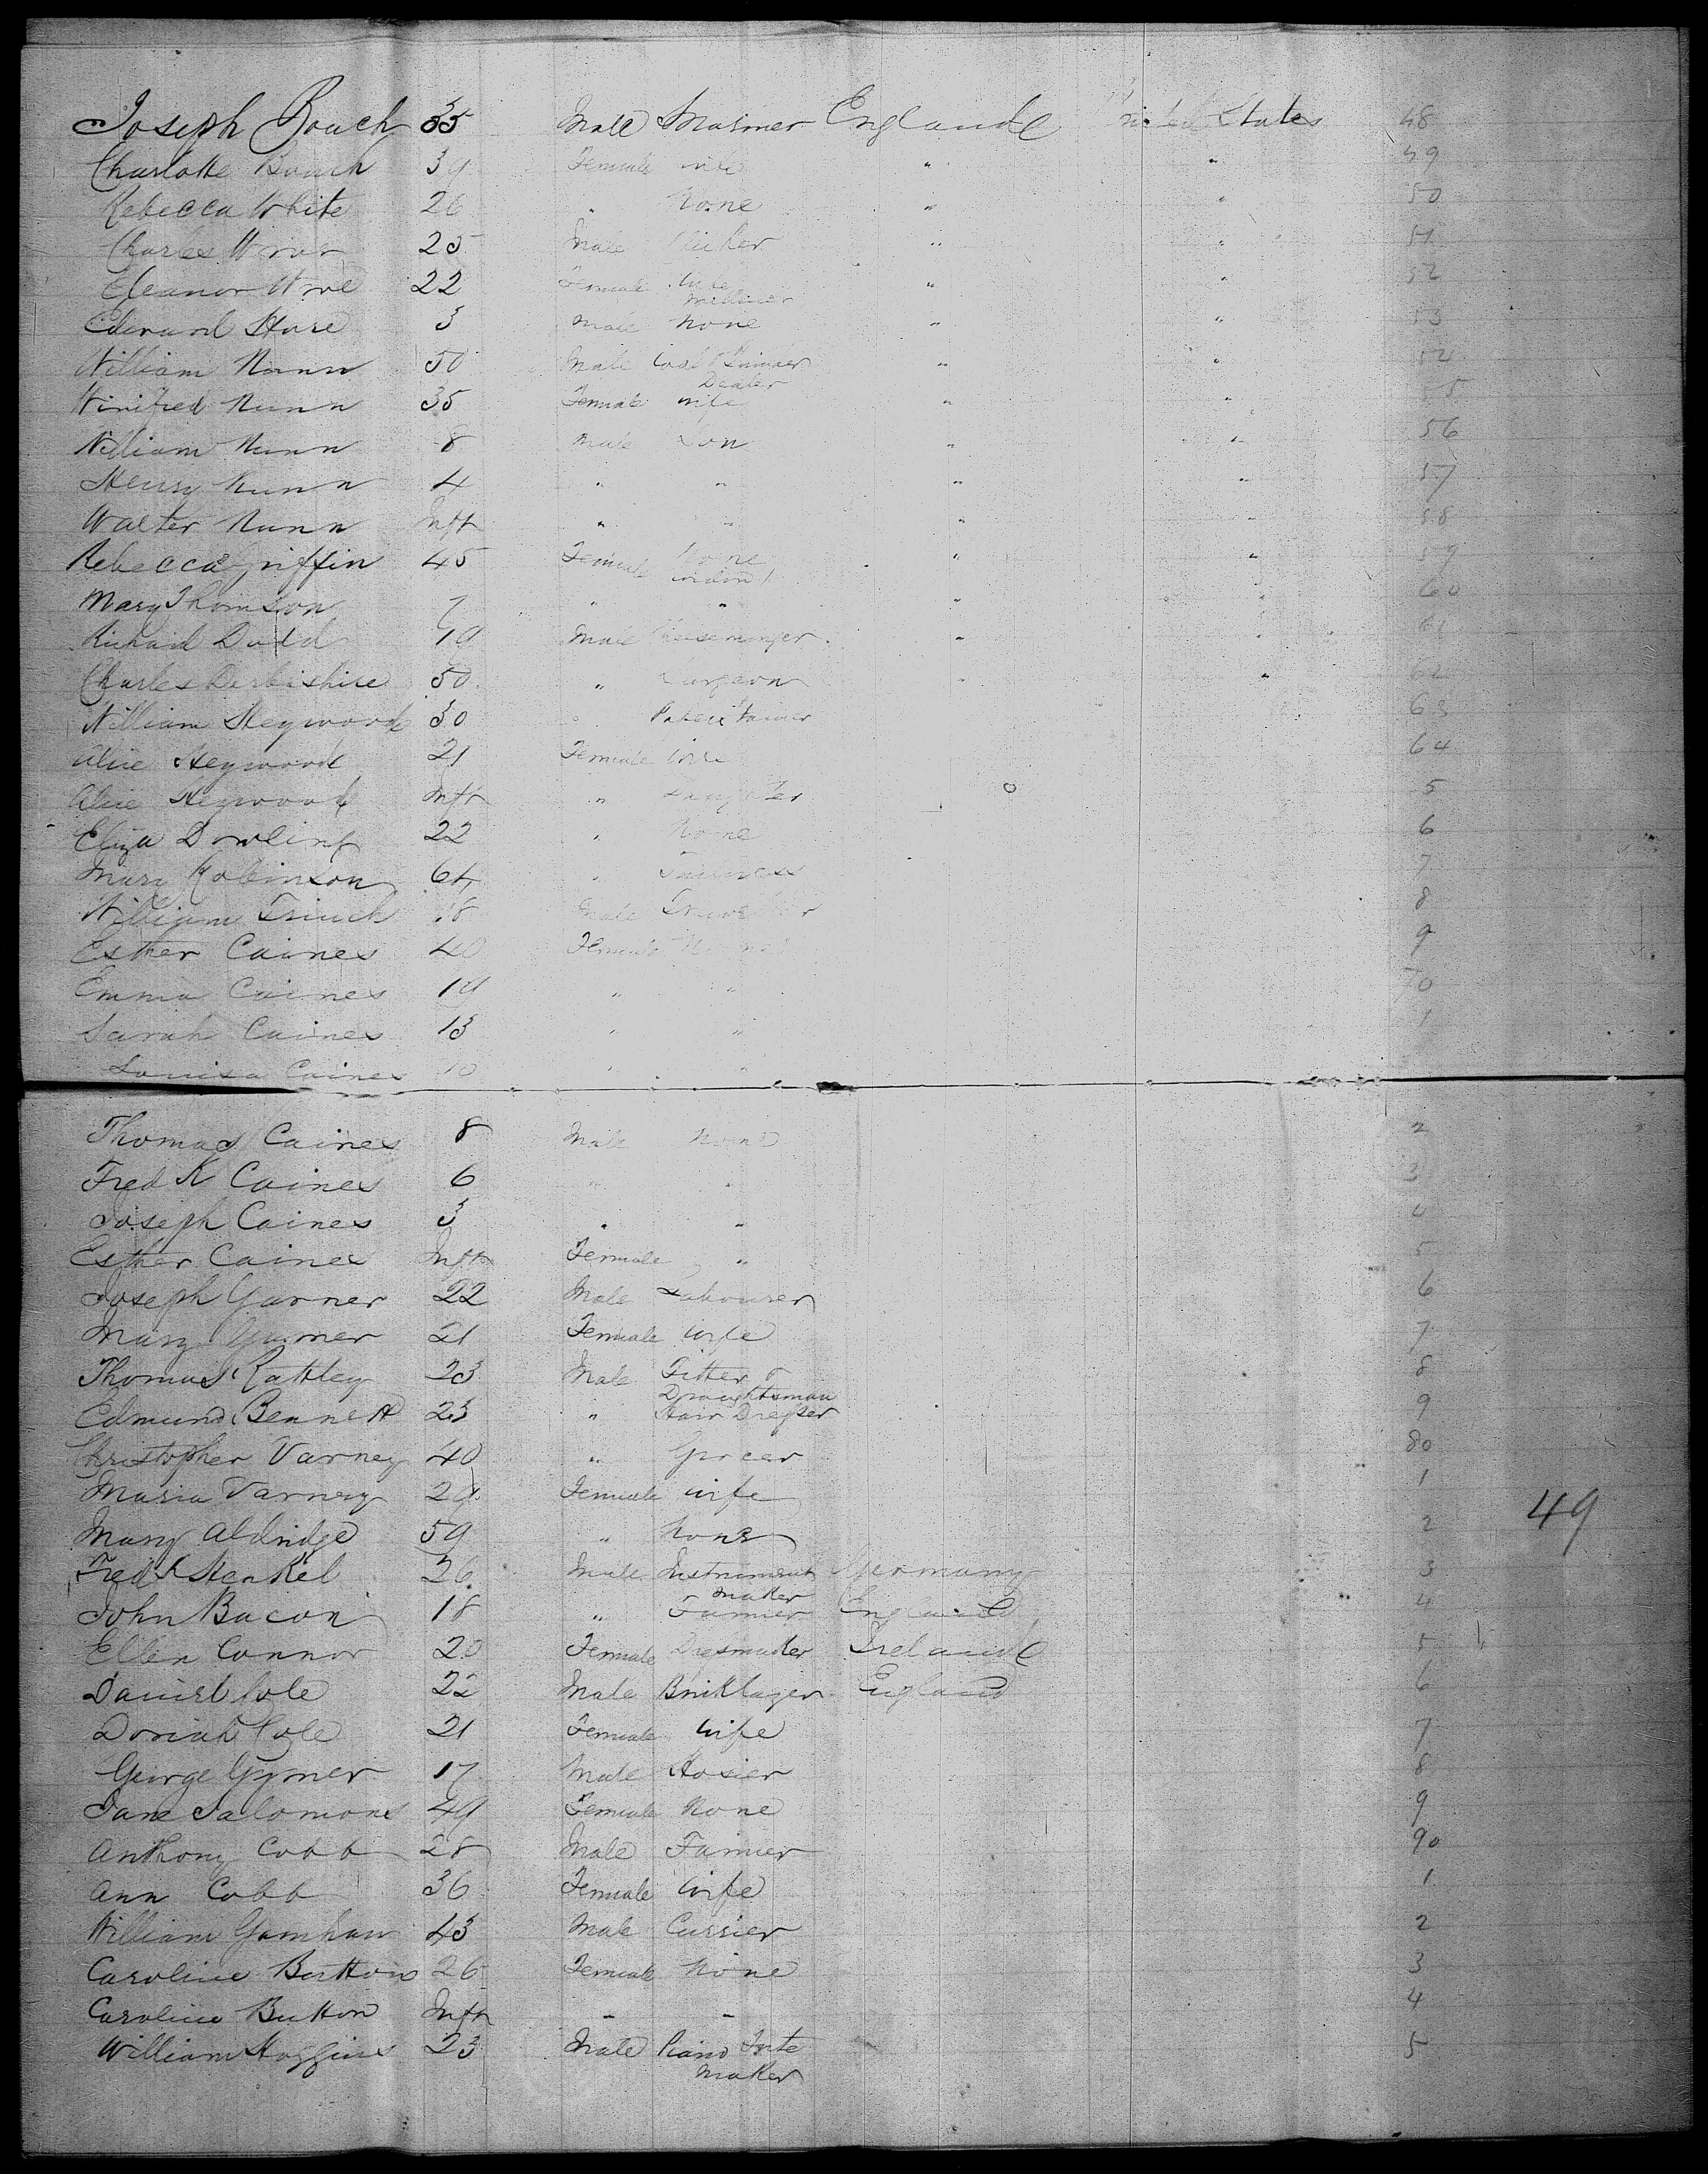 Joseph Bouch 35 Male Mariner England United States 48
Charlotte Bouch 39 Female wife " " 49
Rebecca White 26 " None " " 50
Charles 25 Male " " 51
Eleanor 22 Female wife " " 52
Milliner
Edward Hare 3 Male None " " 53
William Nunn 50 Male Coal & " " 54
Dealer
Winifred Nunn 35 Female wife " " 55
William Nunn 8 Male Son " " 56
Henry Nunn 4 " " " " 57
Walter Nunn Inft " " " " 58
Rebecca Griffin 45 Female None " " 59
widow
Mary Thomson 7 " " " " 60
Richard Dodd 19 Male Cheesemonger " " 61
Charles Derbishire 50 " Surgeon " " 62
William Heywood 30 " 63
Alice Heywood 21 Female wife 64
Alice Heywood Inft " Daughter 5
Eliza Dowling 22 " None 6
Mary Robinson 64 " Tailoress 7
William 18 Male 8
Esther Caines 40 Female None 9
Emma Caines 19 " " 70
Sarah Caines 13 " " 1
Louisa Caines 10 " "
Thomas Caines 8 Male None 2
Fred K Caines 6 " " 3
Joseph Caines 3 " " 4
Esther Caines Inft Female " 5
Joseph Garner 22 Male Labourer 6
Mary Garner 21 Female wife 7
Thomas Rattley 23 Male Fitter & 8
Draughtsman
Edmund Bennett 23 " Hair Dresser 9
Christopher Varney 40 " Grocer 80
Maria Varney 29 Female wife 1
Mary Aldridge 59 " None 2 49
Fredk Henkel 26 Male Instrument Germany 3
Maker
John Bacon 18 " Farmer England 4
Ellen Connor 20 Female Dresmaker Ireland 5
Daniel Cole 22 Male Briklayer England 6
Doriah Cole 21 Female Wife 7
George Gymer 17 Male Hosier 8
Jane Salomons 49 Female None 9
Anthony Cobb 28 Male Farmer 90
Ann Cobb 36 Female Wife 1
William 43 Male Currier 2
Caroline Button 26 Female None 3
Caroline Button Inft " " 4
William Hoggins 23 Male Piano Forte 5
Maker